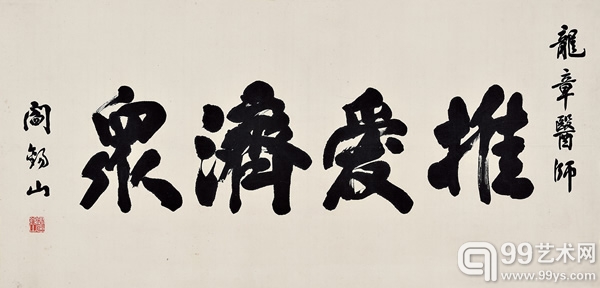 龍章醫師
推愛濟眾
閻錫山
99艺术网
www.99ys.com